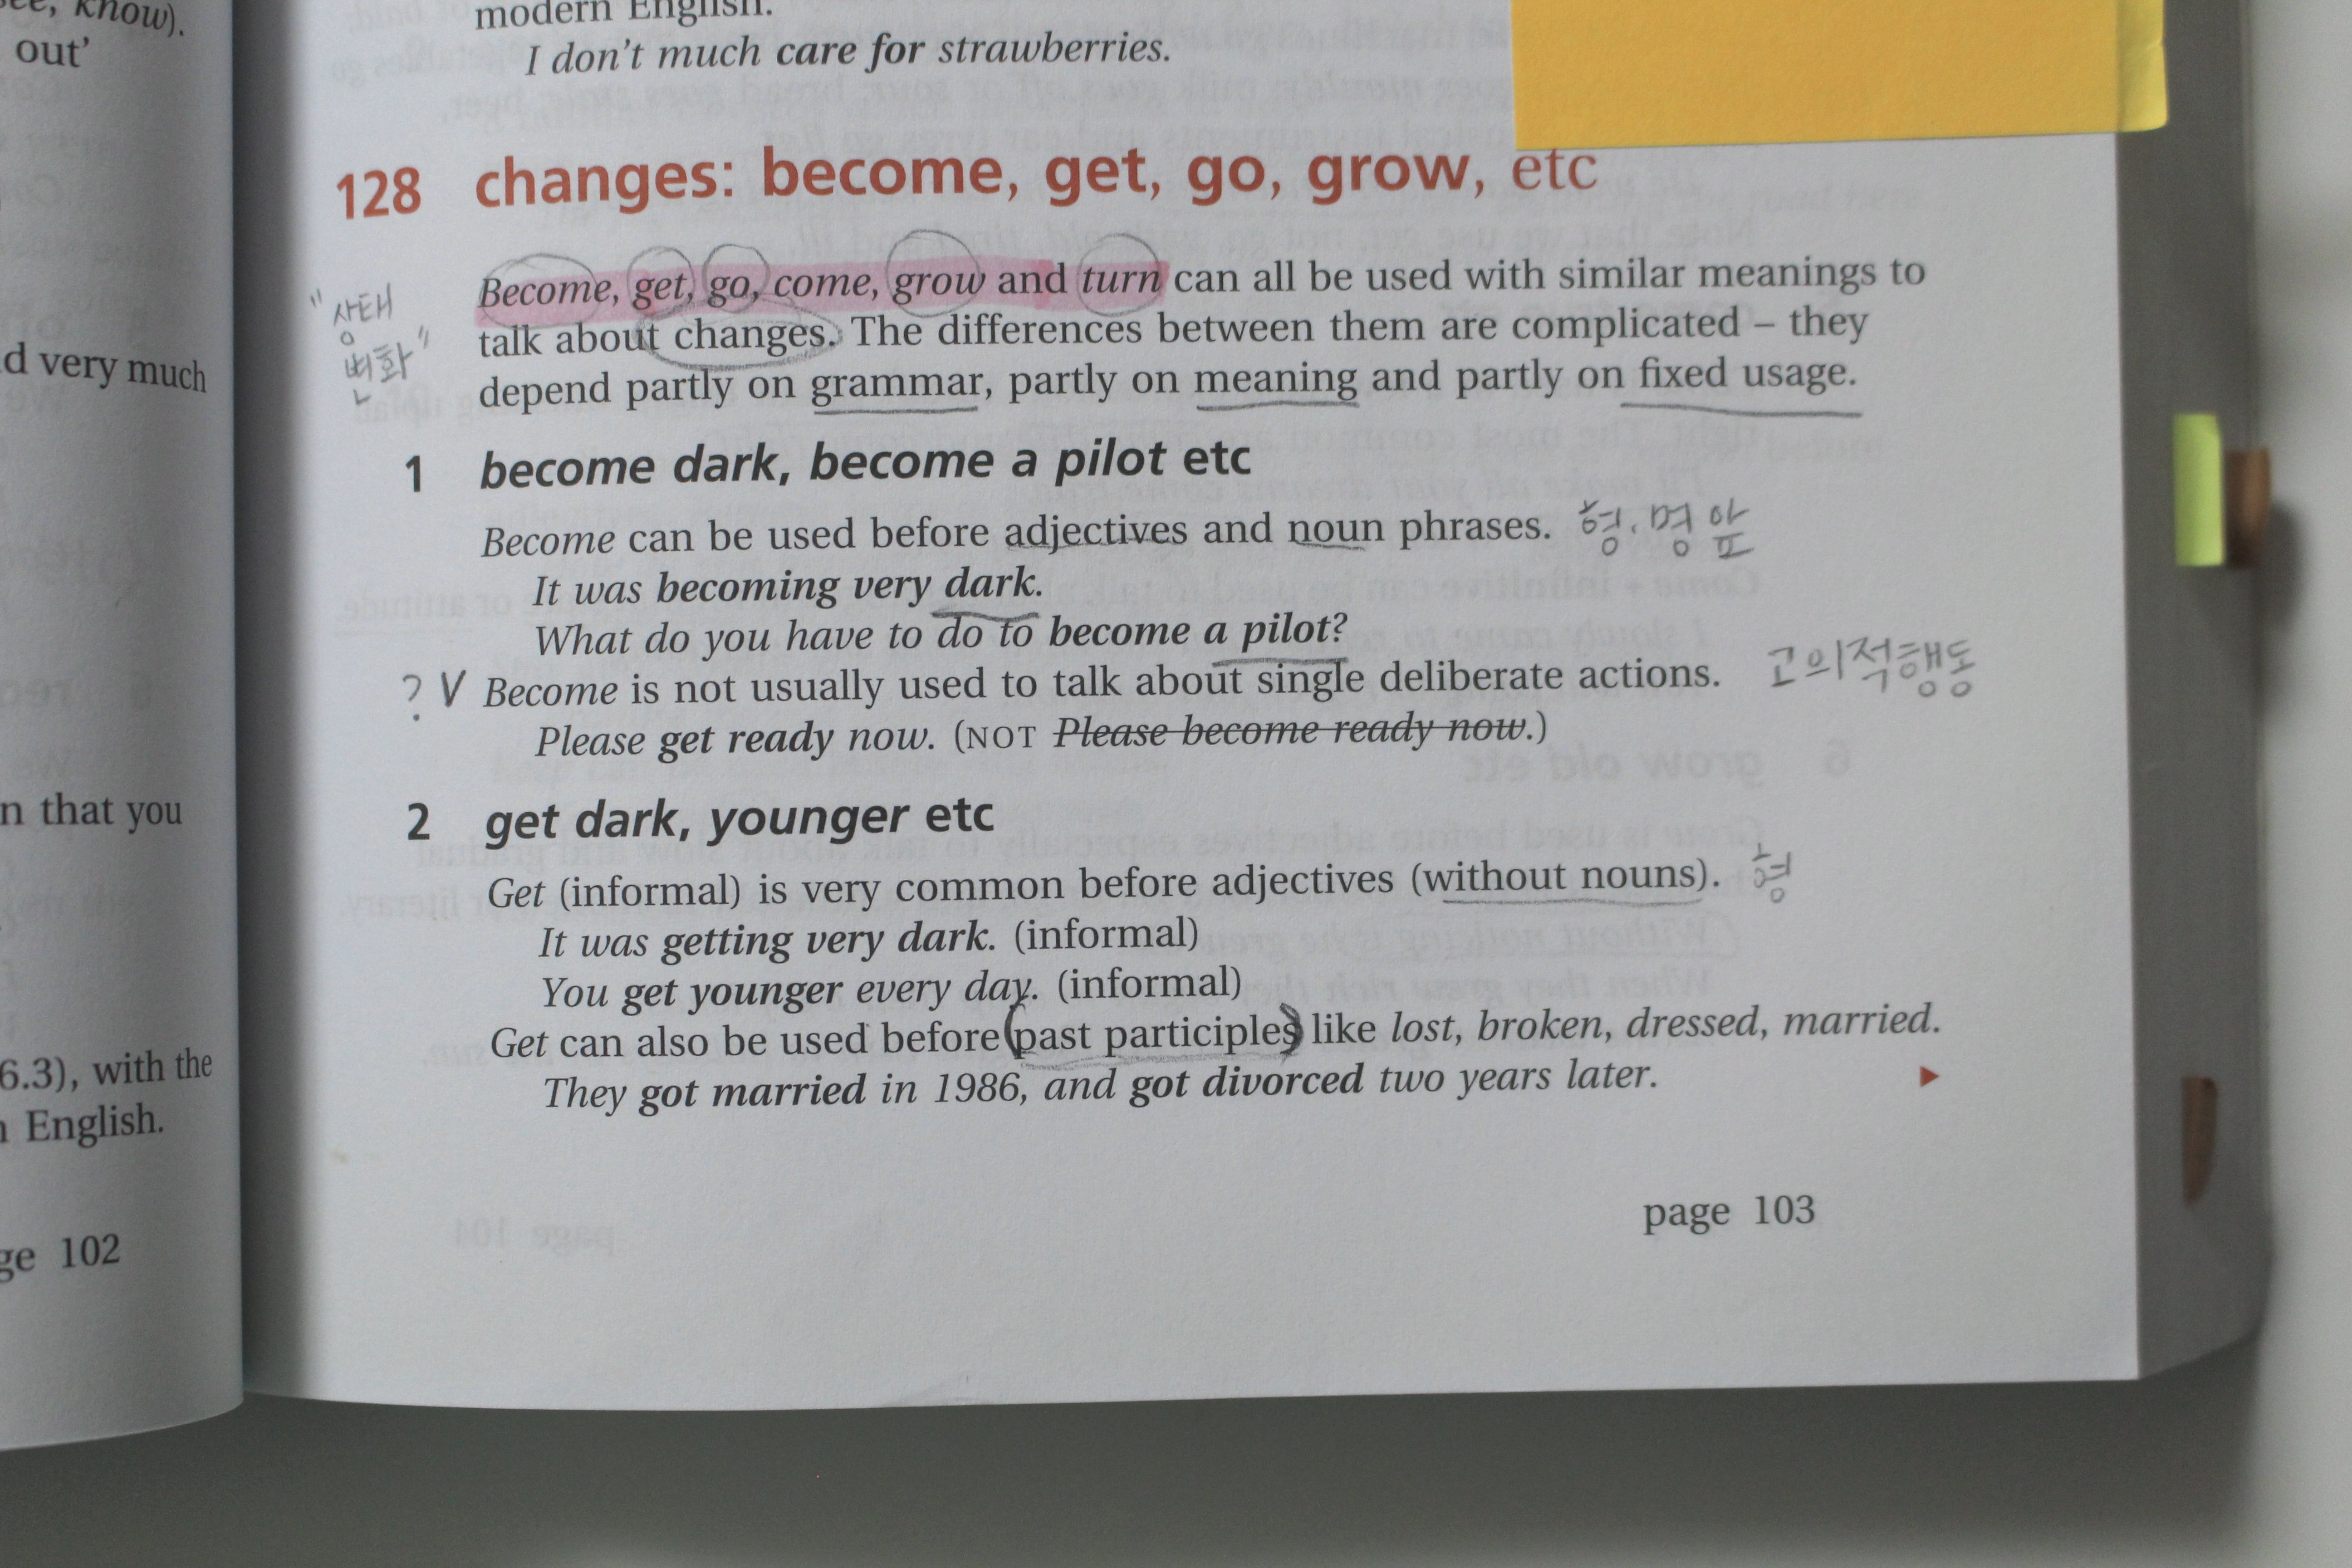 know).
out'
d very much
n that you
6.3), with the
English.
ge 102
modern English.
I don't much care for strawberries.
128 changes: become, get, go, grow, etc
"상태
변화"
Become, get, go, come, grow and turn can all be used with similar meanings to
talk about changes. The differences between them are complicated – they
depend partly on grammar, partly on meaning and partly on fixed usage.
1 become dark, become a pilot etc
Become can be used before adjectives and noun phrases. 형. 명 앞
It was becoming very dark.
What do you have to do to become a pilot?
? V Become is not usually used to talk about single deliberate actions. 고의적행동
Please get ready now. (NOT Please become ready now.)
2 get dark, younger etc
Get (informal) is very common before adjectives (without nouns). 형
It was getting very dark. (informal)
You get younger every day. (informal)
Get can also be used before (past participles) like lost, broken, dressed, married.
They got married in 1986, and got divorced two years later.
page 103